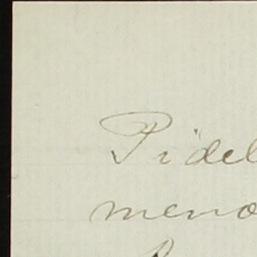 Pidel
meno